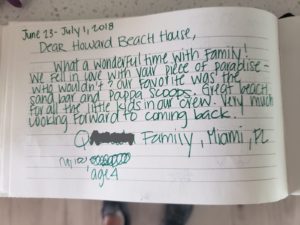 June 23- July 1, 2018
Dear Howard Beach House,
What a wonderful time with family!
We fell in love with your piece of paradise -
who wouldn't? Our favorite was the
sand bar and Pappa Scoops. Great beach
for all the little kids in our crew. Very much
looking forward to coming back.
Family, Miami, FL
age 4